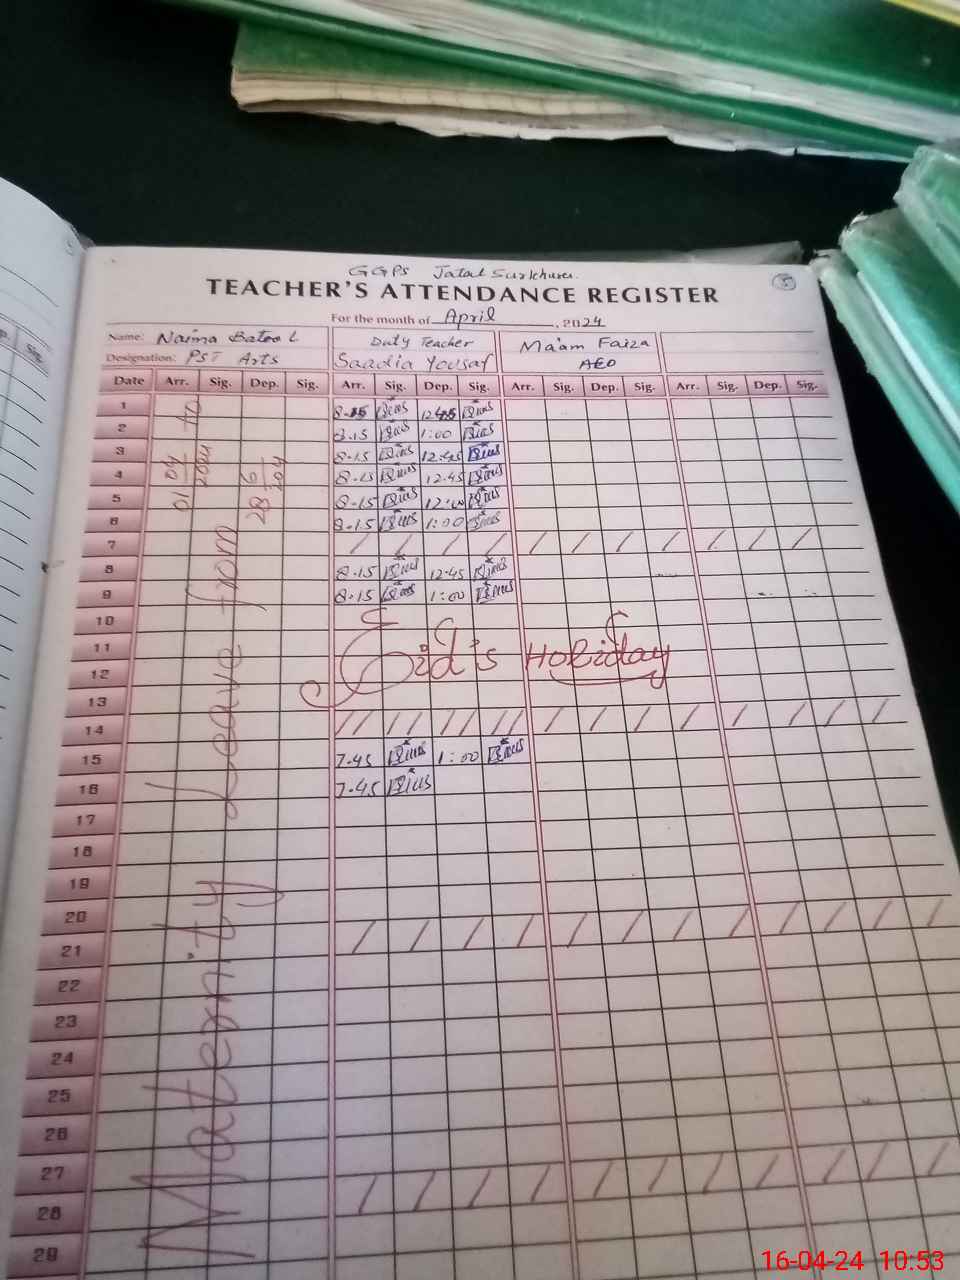 GGPS Jatal Surkhuru.
TEACHER'S ATTENDANCE REGISTER
For the month of April, 2024
Name: Naima Batool Duty Teacher Ma'am Faiza
Designation: PST Arts Saadia Yousaf AEO
Date Arr. Sig. Dep. Sig. Arr. Sig. Dep. Sig. Arr. Sig. Dep. Sig. Arr. Sig. Dep. Sig.
1 8-15 12-45
2 8.15 1:00
3 8-15 12:45
4 8-15 12.45
5 8-15
6 8-15 1:00
7
8 8.15 12-45
9 8.15 1:00
10
11 Eid's Holiday
12
13
14
15 7-45 1:00
16 7-45
17
18
19
20
21
22
23
24
25
26
27
28
29
Maternity Leave from
01 04 2024 to 28 6 204
16-04-24 10:53